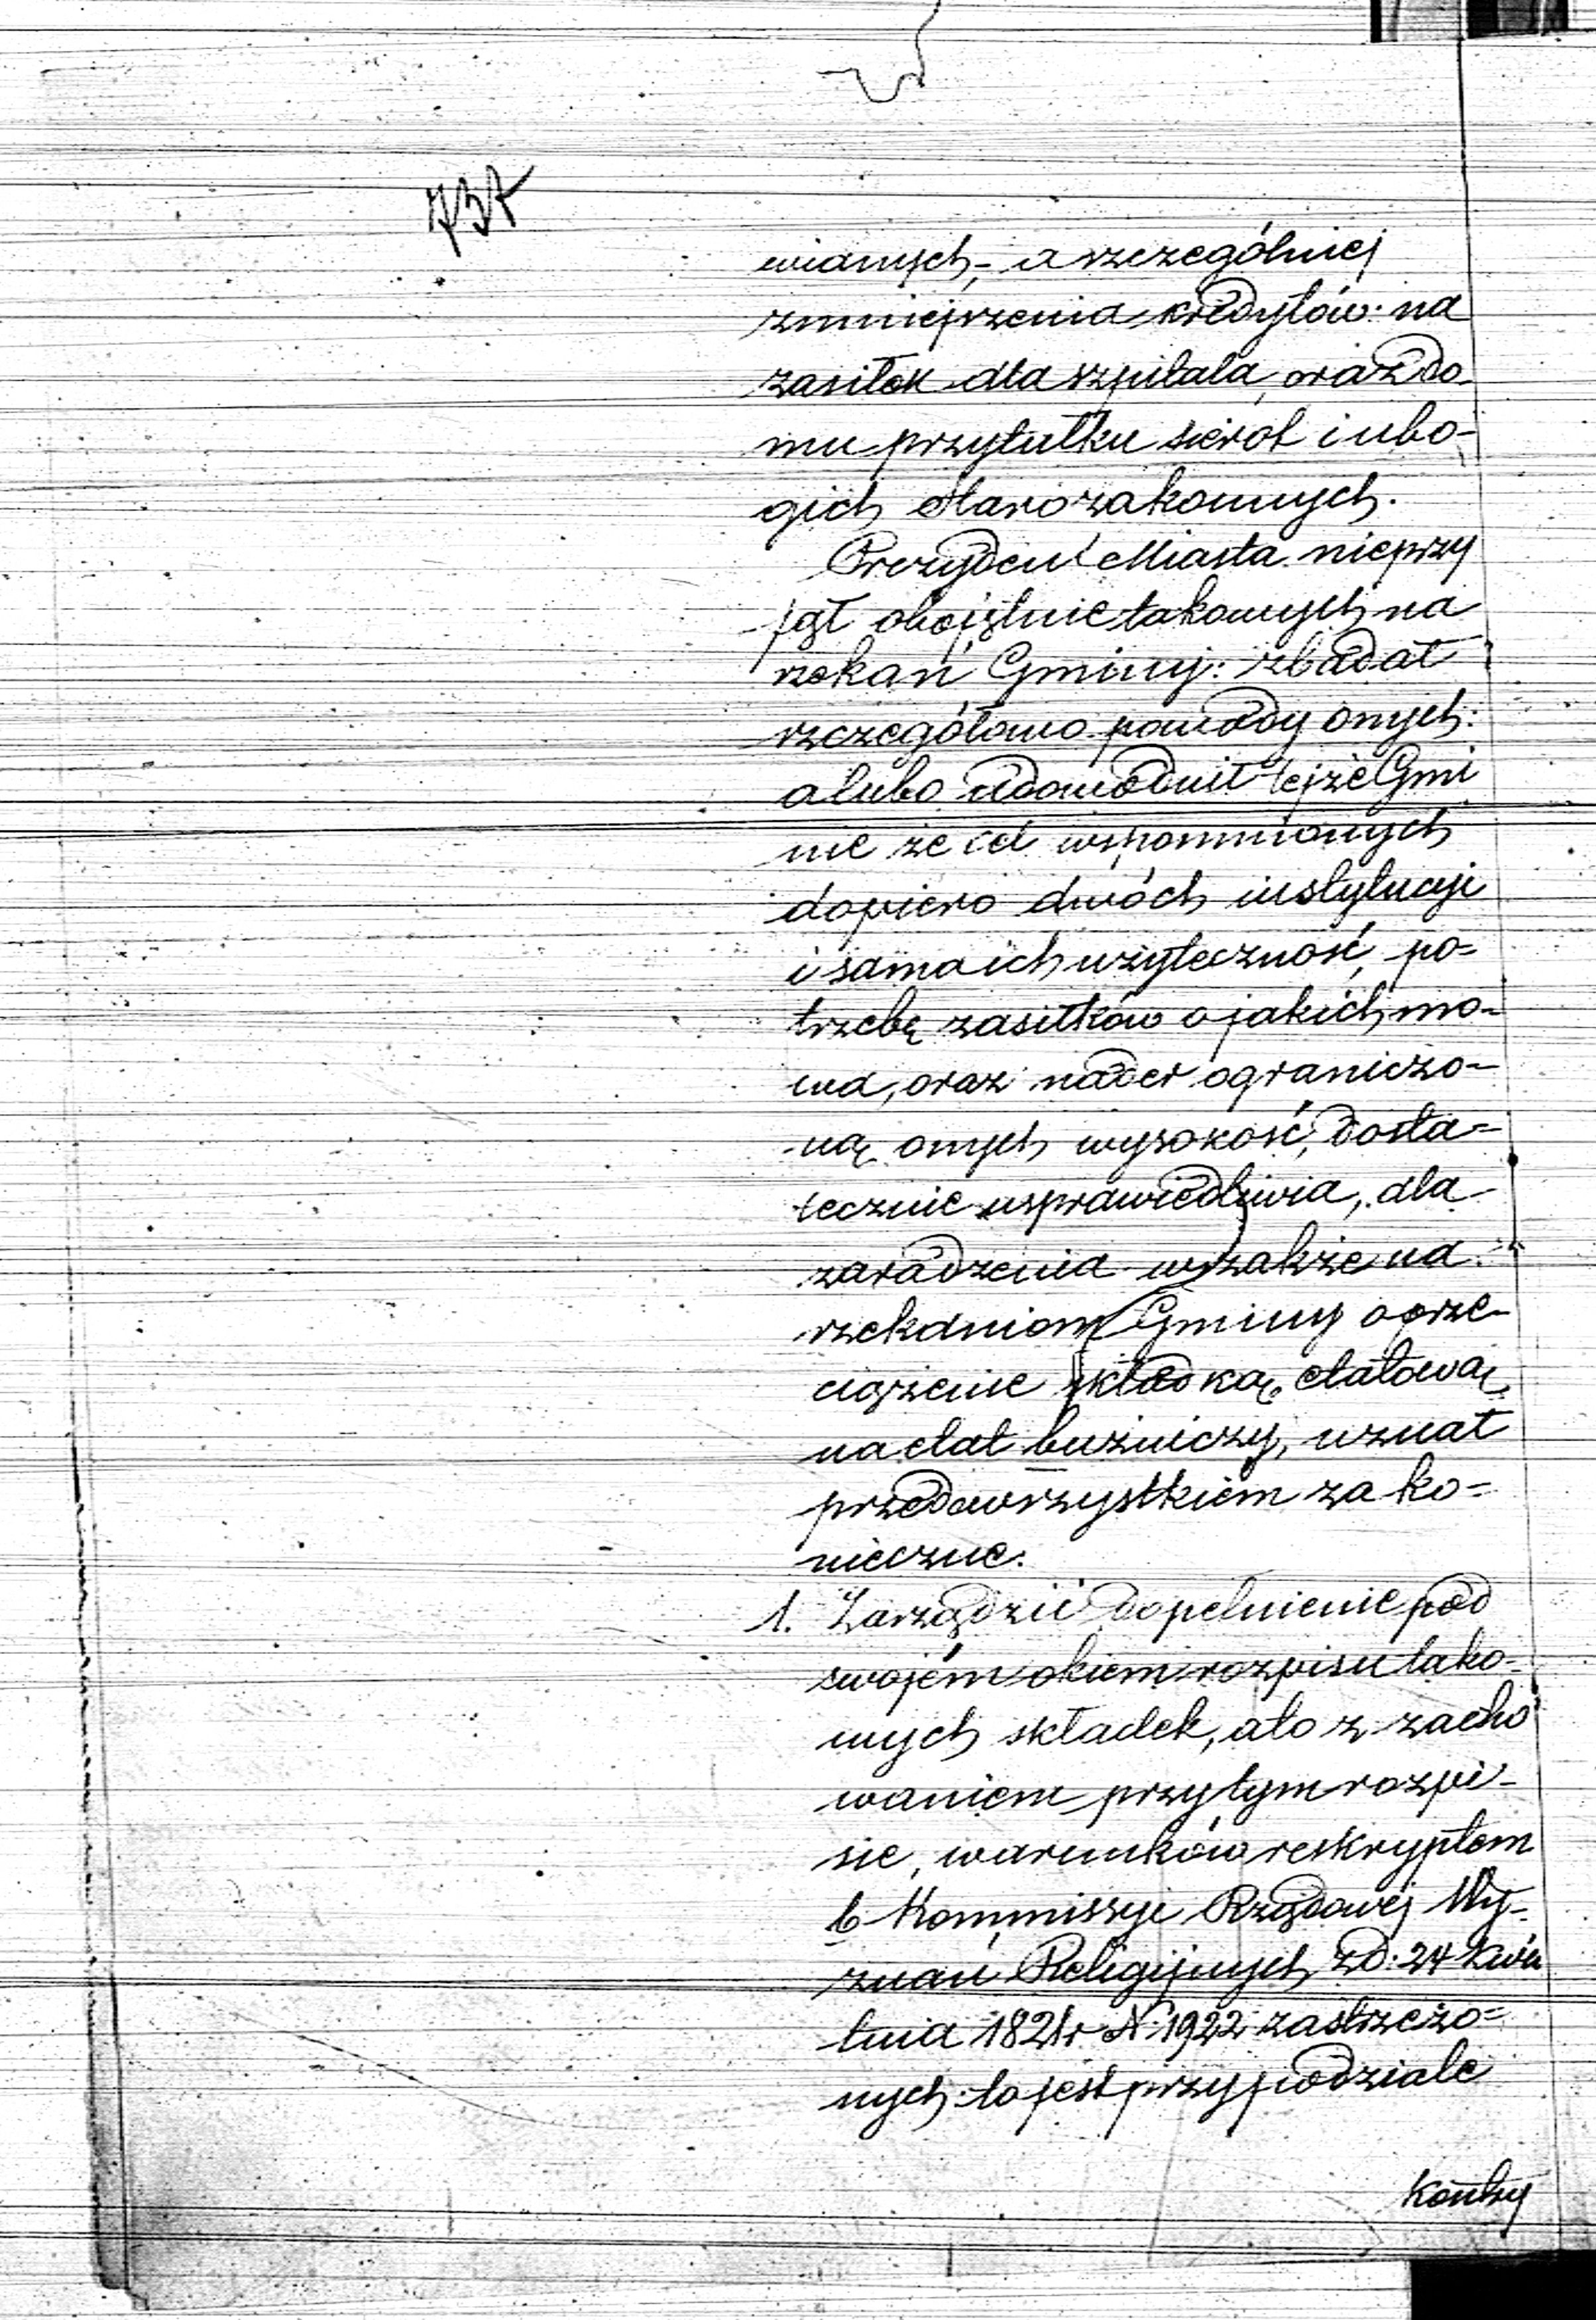 737
wianych,- a szczególniej
zmniejszenia kredytów: na
zasiłek dla szpitala, oraz do-
mu przytułku sierot i ubo-
gich starozakonnych.
Prezydent Miasta nieprzy
jął obojętnie takowych na
rzekań Gminy: zbadał
szczegółowo powody onych:
a lubo udowodnił tejże Gmi
nie że cel wspomnionych
dopiero dwóch instytucyi
i sama ich użyteczność, po-
trzebę zasiłków o jakich mo-
wa, oraz nader ograniczo-
ną onych wysokość, dosta=
tecznie usprawiedliwia, dla
zaradzenia wszakże na
rzekaniom Gminy o prze-
ciążenie składką etatową
na etat buźniczy, uznał
przedewszystkiem za ko=
nieczne:
1. Zarządzić dopełnienie pod
swojém okiem rozpisu tako-
wych składek, a to z zacho
waniem przy tym rozpi-
sie, warunków reskryptem
b Kommissyi Rządowéj Wy-
znań Religijnych z d: 24 Kwie
tnia 1821r N. 1922 zastrzeżo=
nych: to jest przy podziale
Kontry